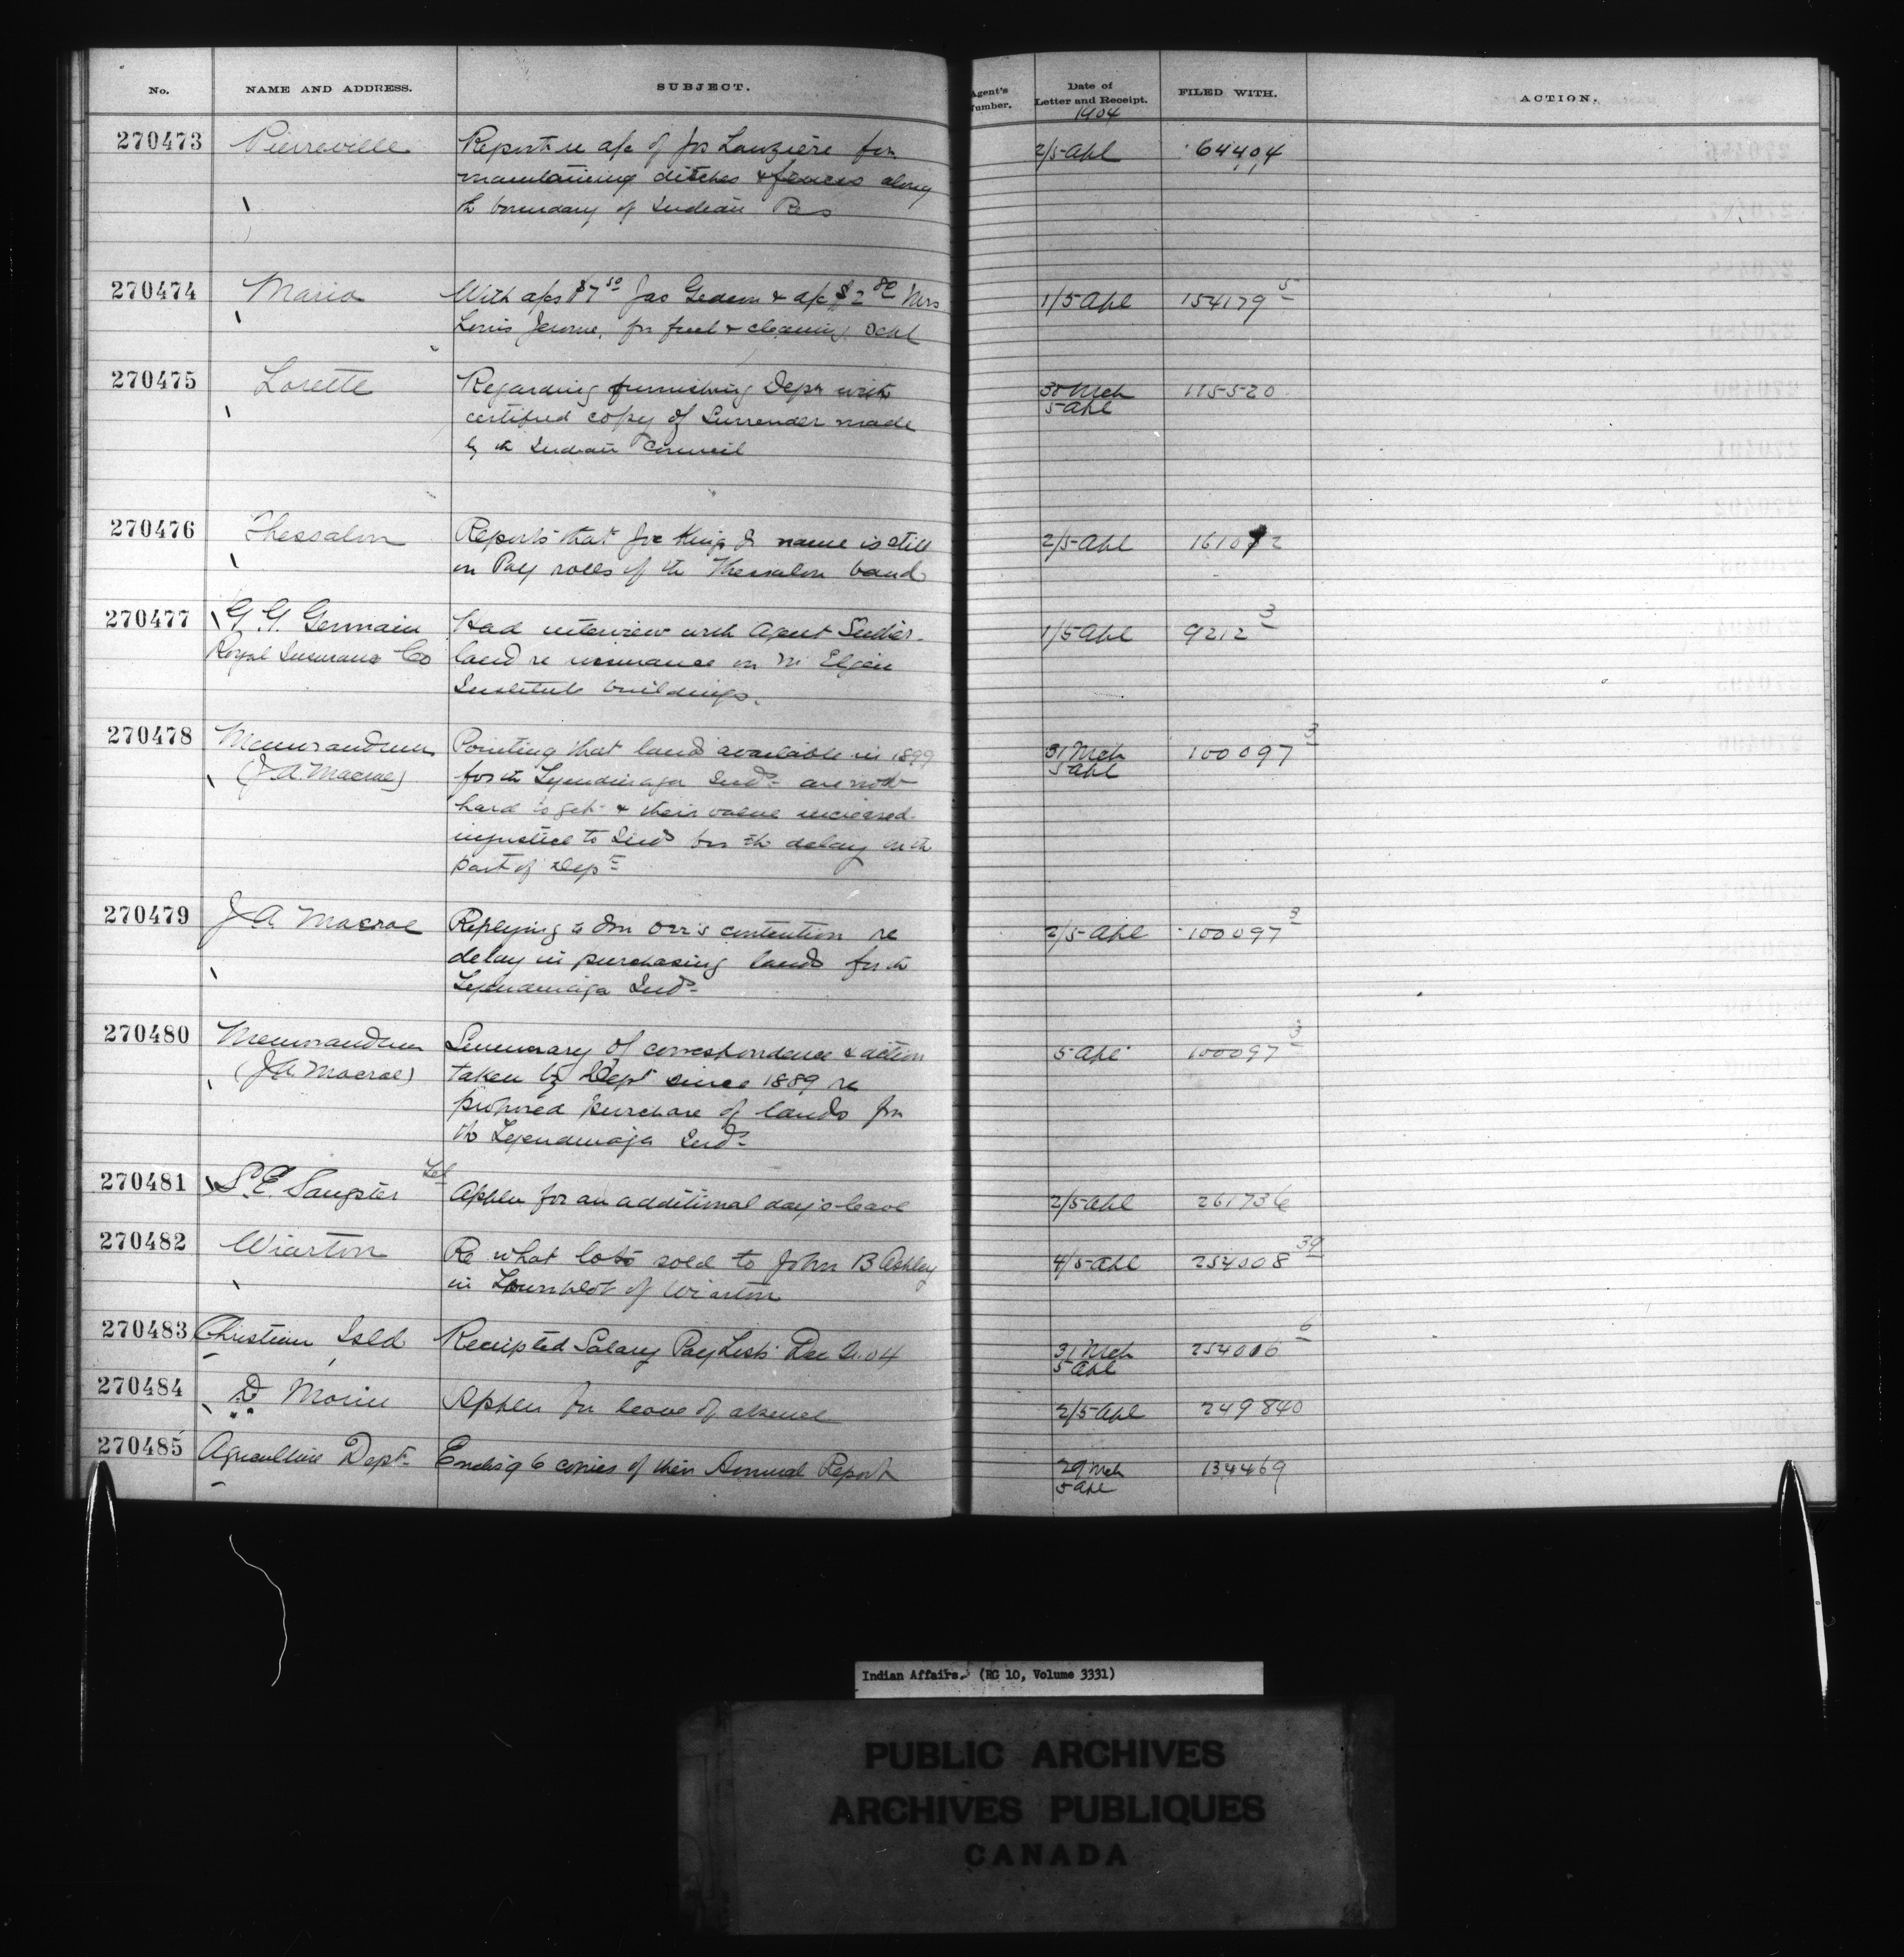 No. NAME AND ADDRESS. SUBJECT. Agent's Number. Date of Letter and Receipt. FILED WITH. ACTION.
1904
270473 Pierreville Report re a/c of Jos Lauzière for 2/5 Apl 64404
maintaining ditches & fences along
th boundary of Indian Res
270474 Maria With a/cs $7 50 Jas Gedeon & a/c $2 80 Mrs 1/5 Apl 154179 5
Louis Jerome, for fuel & cleaning Schl
270475 Lorette Regarding furnishing Dept with 30 Mch 115520
certified copy of Surrender made 5 Apl
by th Indian Council
270476 Thessalon Reports that Joe King's name is still 2/5 Apl
on Pay rolls of th Thessalon band
270477 G. G. Germain Had interview with Agent Suther- 1/5 Apl 9212 3
Royal Insurance Co land re insurance on Mt Elgin
Institute buildings.
270478 Memorandum Pointing that lands available in 1899 31 Mch 100097 3
(J A Macrae) for th Tyendinaga Inds are now 5 Apl
hard to get & their value increased
injustice to Inds for th delay on th
part of Dept
270479 J A Macrae Replying to Orr's contention re 2/5 Apl 100097 3
delay in purchasing lands for th
Tyendinaga Inds
270480 Memorandum Summary of correspondence & action 5 Apl 100097 3
(J A Macrae) taken by Dept since 1889 re
proposed purchase of lands for
th Tyendinaga Inds
270481 S. E. Sangster Tel Appln for an additional day's leave 2/5 Apl 261736
270482 Wiarton Re what lots sold to John B Ashley 4/5 Apl 254008 39
in Townplot of Wiarton
270483 Christian Isld Receipted Salary Pay Lists 31 Mch 254006 6
5 Apl
270484 D Morin Appln for leave of absence 2/5 Apl 249840
270485 Agriculture Dept Enclsg 6 copies of their Annual Report 29 Mch 134469
5 Apl
Indian Affairs. (RG 10, Volume 3331)
PUBLIC ARCHIVES
ARCHIVES PUBLIQUES
CANADA